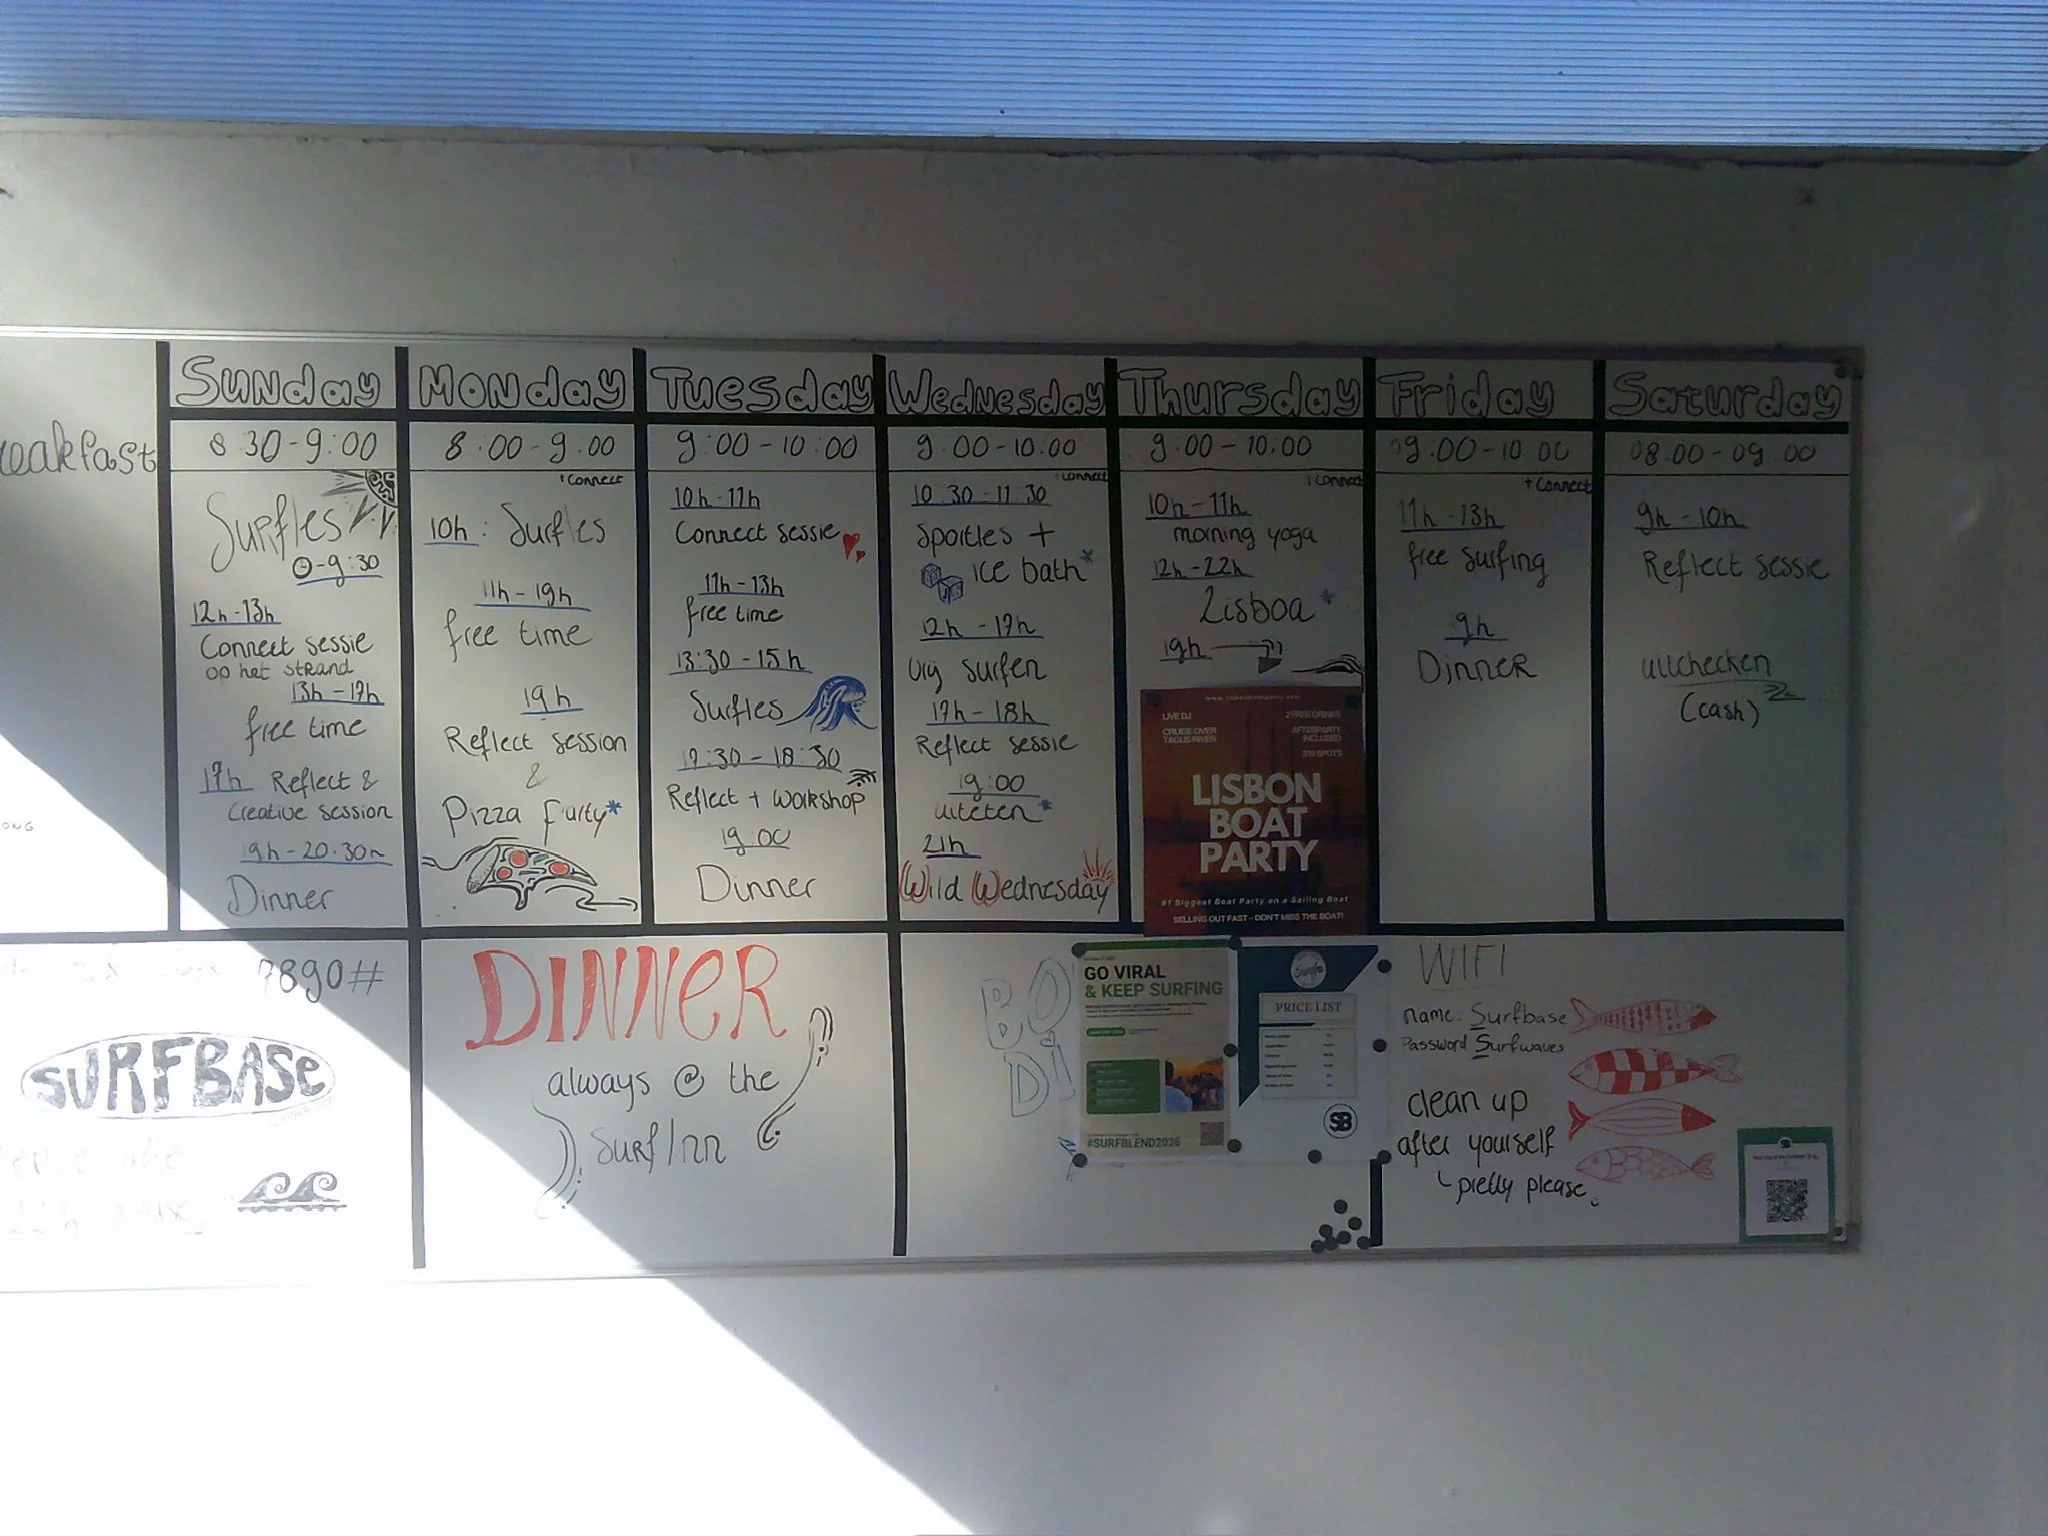 Sunday
Monday
Tuesday
Wednesday
Thursday
Friday
Saturday
8 30-9:00
8:00-9:00
9:00-10:00
9:00-10:00
9:00-10:00
09:00-10 00
08:00-09 00
Surfles
-9:30
12h-13h
Connect sessie
op het strand
13h-17h
free time
17h Reflect &
Creative session
19h-20.30h
Dinner
+ Connect
10h: Surfles
11h-19h
free time
19h
Reflect session
&
Pizza Party*
10h-11h
Connect sessie
11h-13h
free time
13:30-15h
Surfles
17:30-18:30
Reflect + workshop
19:00
Dinner
+ connect
10 30-11:30
Sportles +
ice bath*
12h-17h
Vrij surfen
17h-18h
Reflect sessie
19:00
uiteten*
21h
Wild Wednesday
+ Connect
10h-11h
morning yoga
12h-22h
Lisboa*
19h
LIVE DJ
CRUISE OVER
TAGUS RIVER
2 FREE DRINKS
AFTERPARTY
INCLUDED
LISBON
BOAT
PARTY
#1 Biggest Boat Party on a Sailing Boat
SELLING OUT FAST - DON'T MISS THE BOAT!
+ Connect
11h-13h
free surfing
9h
Dinner
9h-10h
Reflect sessie
uitchecken
(cash)
7890#
SURFBASE
DINNER
always @ the
Surf Inn
GO VIRAL
& KEEP SURFING
#SURFBLEND2026
PRICE LIST
SB
WIFI
name: Surfbase
Password Surfwaves
clean up
after yourself
pretty please